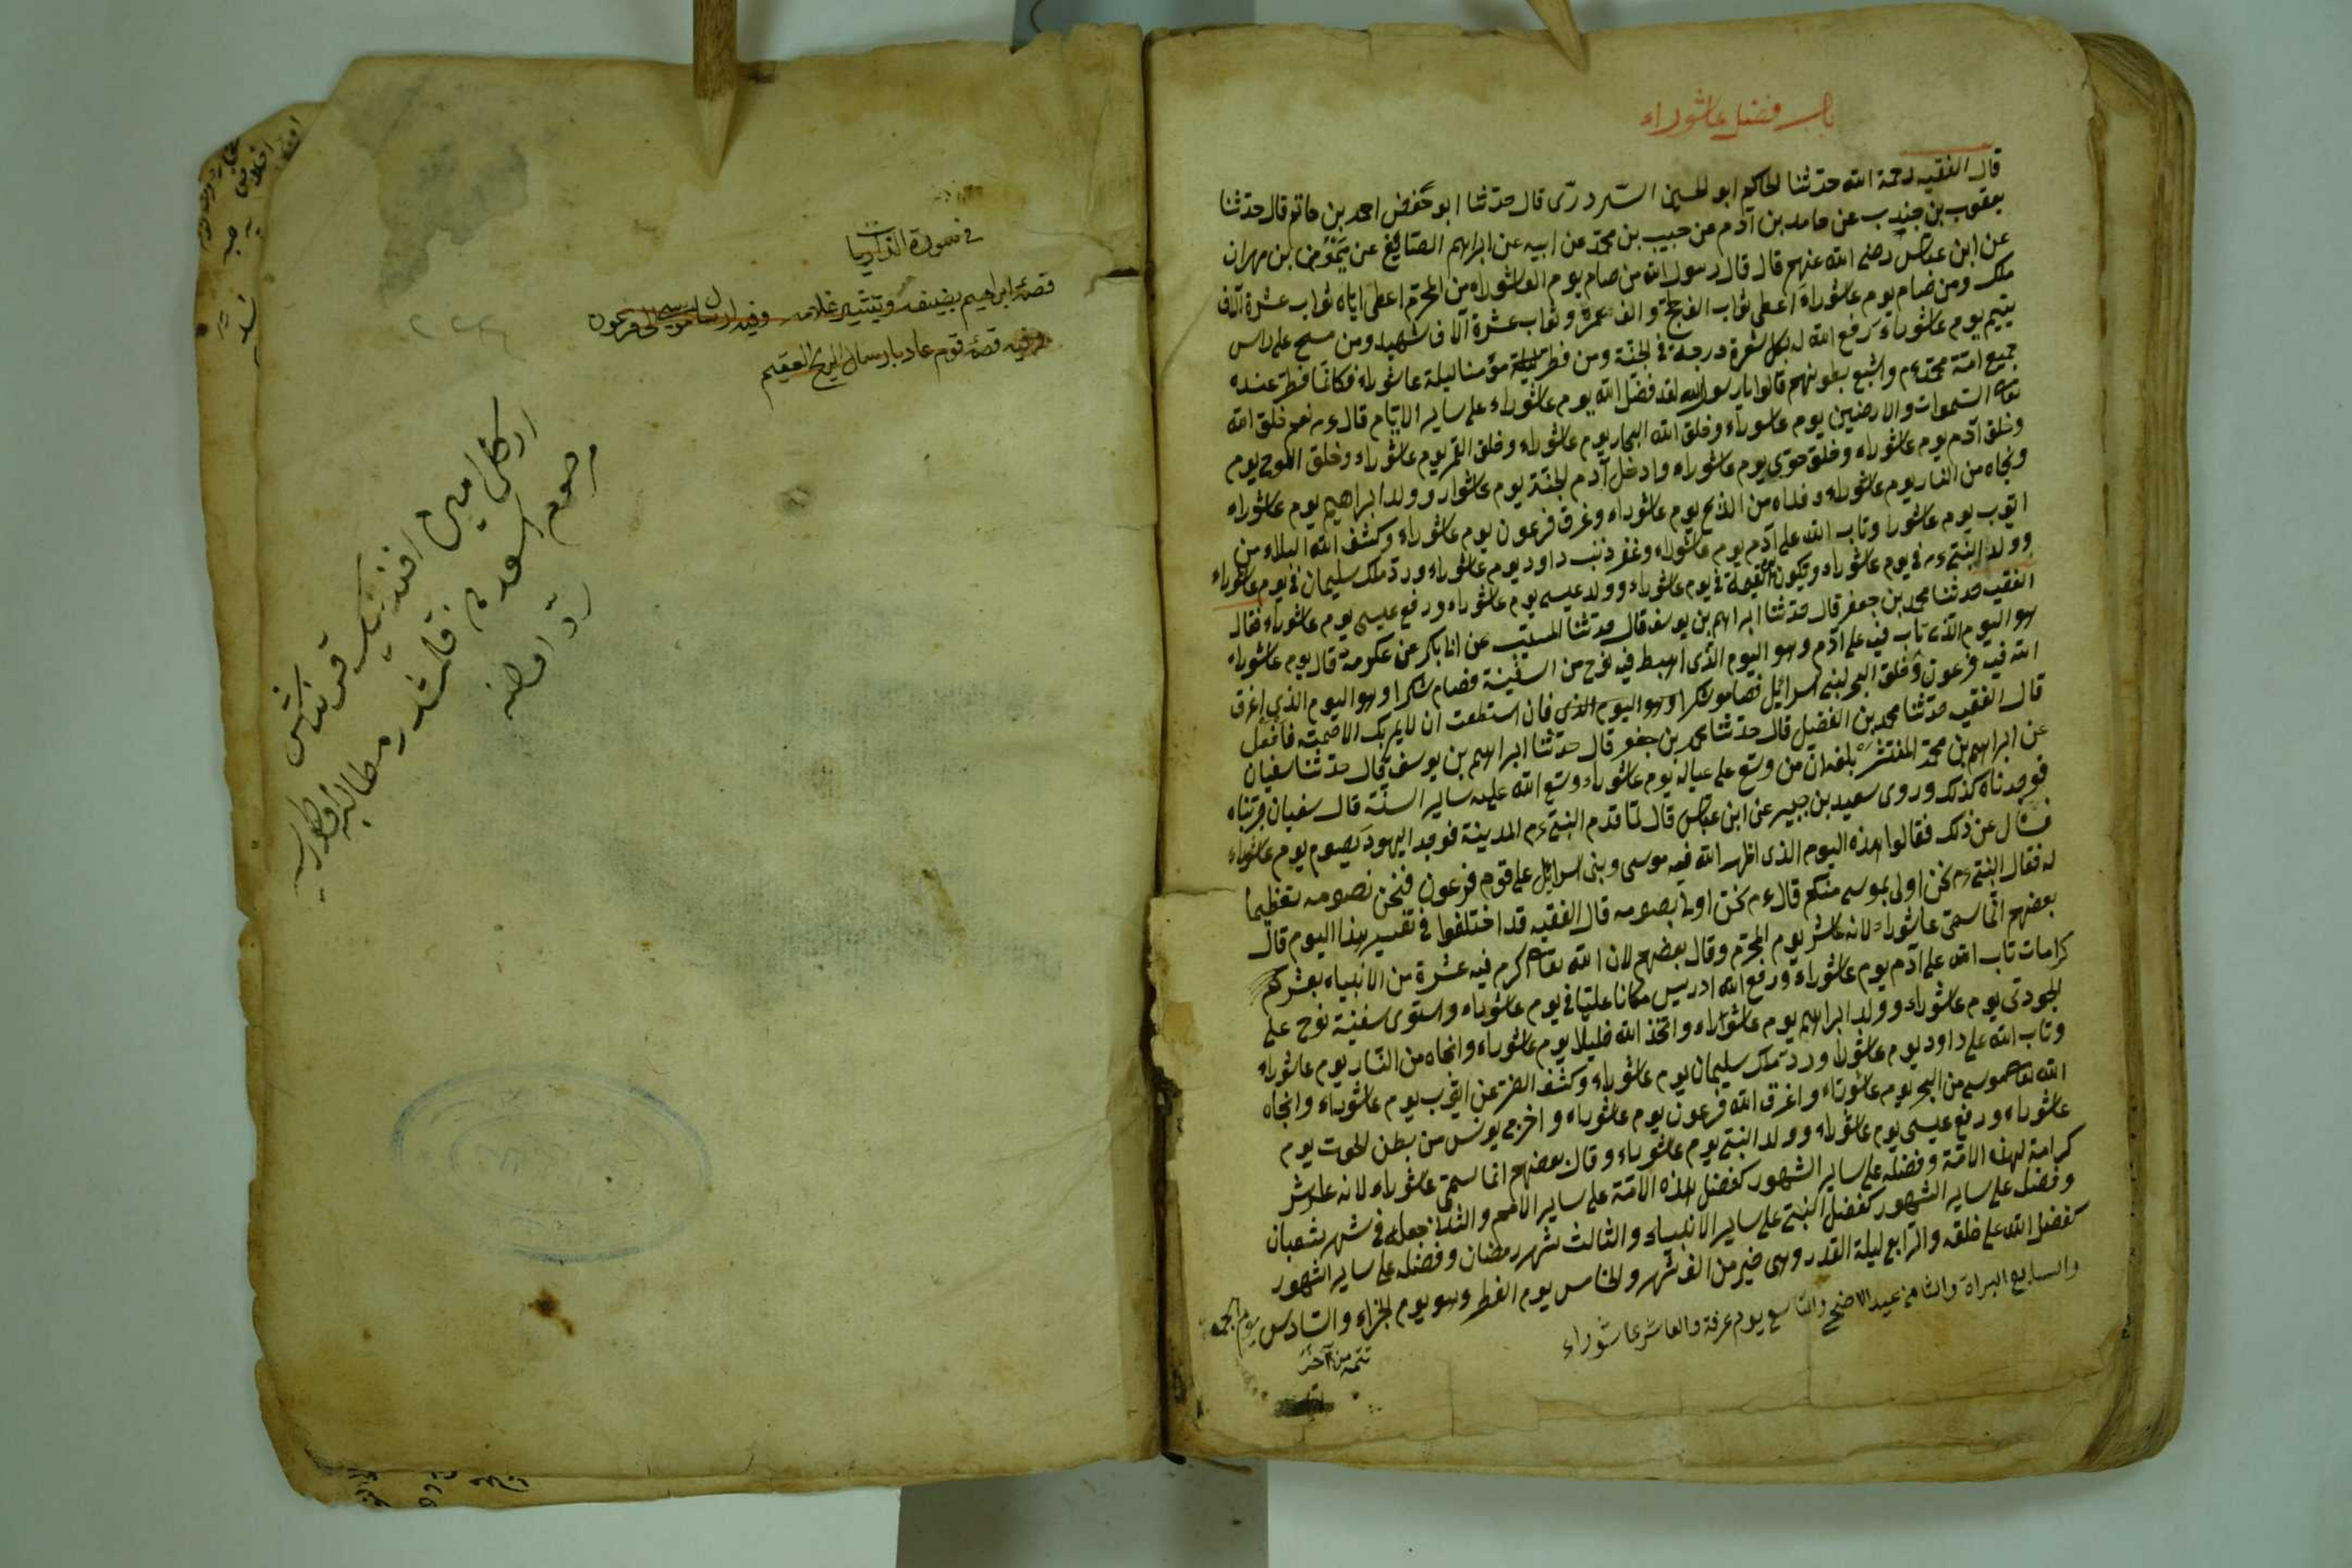 باب فضل عاشوراء
قال الفقيه رحمة الله حدثنا الحاكم ابو الحسين السردرى قال حدثنا ابو حفض احمد بن حاتم قال حدثنا
يعقوب بن جندب عن حامد بن آدم عن حبيب بن محمد عن ابيه عن ابراهيم الصتايغ عن ميمون بن مهران
عن ابن عباس رضى الله عنهم قال قال رسول الله من صام يوم العاشوراء من المحرم اعطى اياه ثواب عشرة آلاف
ملك ومن صام يوم عاشوراء اعطى ثواب الف حجة والف عمرة وثواب عشرة آلاف شهيد ومن مسح على راس
يتيم يوم عاشوراء رفع الله له بكل شعرة درجة فى الجنة ومن فطر مؤمنا ليلة عاشوراء فكانما فطر عنده
جميع امة محمد عم واشبع بطونهم قالوا يا رسول الله لقد فضل الله يوم عاشوراء على ساير الايام قال عم نعم خلق الله
تعا السموات والارضين يوم عاشوراء وخلق الله البحار يوم عاشوراء وخلق القمر يوم عاشوراء وخلق اللوح يوم
وخلق آدم يوم عاشوراء وخلق حوى يوم عاشوراء وادخل آدم الجنة يوم عاشوار وولد ابراهيم يوم عاشوراء
ونجاه من النار يوم عاشوراء وفداه من الذبح يوم عاشوراء وغرق فرعون يوم عاشوراء وكشف الله البلاء من
ايوب يوم عاشورا وتاب الله على آدم يوم عاشوراء وغفر ذنب داود يوم عاشوراء ورد ملك سليمان فى يوم عاشوراء
وولد النبى عم فى يوم عاشوراء ويكون القيمة فى يوم عاشوراء وولد عيسى يوم عاشوراء ورفع عيسى يوم عاشوراء فقال
الفقيه حدثنا محمد بن جعفر قال حدثنا ابراهيم بن يوسف قال حدثنا المسيب عن ابا بكر عن عكرمة قال يوم عاشوراء
هو اليوم الذى تاب فيه على آدم وهو اليوم الذى اهبط فيه نوح من السفينة فصام شكرا وهو اليوم الذى اغرق
الله فيه فرعون وفلق البحر لبنى اسرائيل فصاموا شكرا وهو اليوم الذى فان استطعت ان لا يمر بك الا صمته فافعل
قال الفقيه حدثنا محمد بن الفضيل قال حدثنا محمد بن جعفر قال حدثنا ابراهيم بن يوسف قال حدثنا سفيان
عن ابراهيم بن محمد المنتشر بلغه ان من وسع على عياله يوم عاشوراء وسع الله عليه ساير السنة قال سفيان جربناه
فوجدناه كذلك وروى سعيد بن جبير عن ابن عباس قال لما قدم النبى عم المدينة فوجد اليهود يصوم يوم عاشوراء
فسأل عن ذلك فقالوا هذه اليوم الذى اظهر الله فيه موسى وبنى اسرائيل على قوم فرعون فنحن نصومه تعظيما
له فقال النبى عم نحن اولى بموسى منكم قال عم نحن اولى بصومه قال الفقيه قد اختلفوا فى تفسير هذا اليوم قال
بعضهم انما سمى عاشوراء لانه عاشر يوم المحرم وقال بعضهم لان الله تعا اكرم فيه عشرة من الانبياء بعشر كم
كرامات تاب الله على آدم يوم عاشوراء ورفع الله ادريس مكانا عليا فى يوم عاشوراء واستوى سفينة نوح على
الجودى يوم عاشوراء وولد ابراهيم يوم عاشوراء واتخذ الله خليلا يوم عاشوراء وانجاه من النار يوم عاشوراء
وتاب الله على داود يوم عاشورا ورد ملك سليمان يوم عاشوراء وكشف الضر عن ايوب يوم عاشوراء وانجاه
الله تعا موسى من البحر يوم عاشوراء واغرق الله فرعون يوم عاشوراء واخرج يونس من بطن الحوت يوم
عاشوراء ورفع عيسى يوم عاشوراء وولد النبى يوم عاشوراء وقال بعضهم انما سمى عاشوراء لانه عاشر
كرامة لهذه الامة وفضله على ساير الشهور كفضل هذه الامة على ساير الامم والثانى جعله فى شهر شعبان
وفضله على ساير الشهور كفضل النبى على ساير الانبياء والثالث شهر رمضان وفضله على ساير الشهور
كفضل الله على خلقه والرابع ليلة القدر وهى خير من الف شهر والخامس يوم الفطر وهو يوم الجزاء والسادس يوم الجمعه
والسابع البراة والثامن عيد الاضحى والتاسع يوم عرفة والعاشر عاشوراء
تتمه من آخر
فى سورة الذاريات
قصة ابراهيم بضيفه وتبشير غلامه وفيه ارسال موسى الى فرعون
وفيه قصة قوم عاد بارسال الريح العقيم
امين افندينك
مرحوم